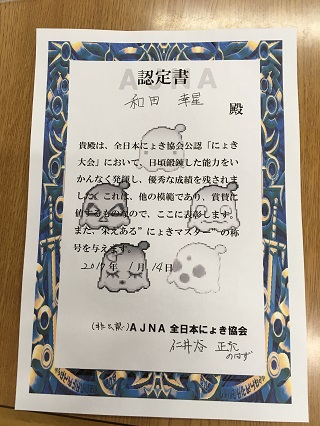 AJNA
認定書
和田 幸星
殿
貴殿は、全日本にょき協会公認「にょき
大会」において、日頃鍛錬した能力をい
かんなく発揮し、優秀な成績を残されま
した。これは、他の模範であり、賞賛に
値するものなので、ここに表彰します。
また、“栄えある”にょきマスター”の称
号を与えます。
年 1月 14日
AJNA 全日本にょき協会
仁井谷 正充
のはず